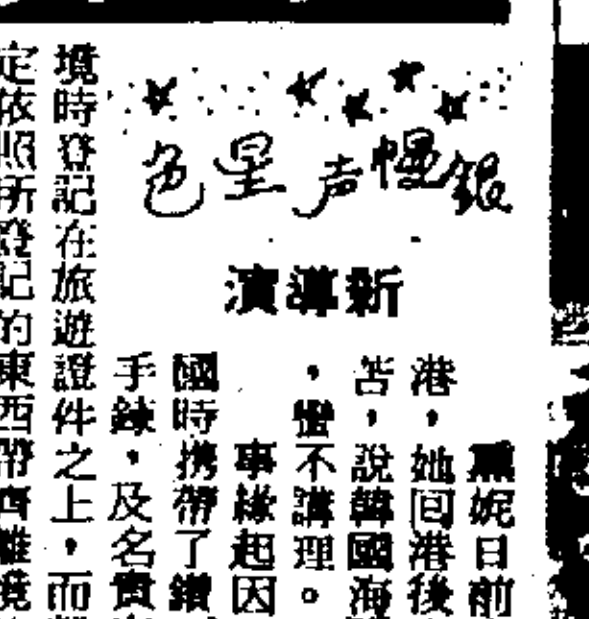 銀幔星声色
新導演
熏妮日前
港，她囘港後
苦，說韓國海
，蠻不講理。
事緣起因
國時携帶了鑽
手鍊，及名貴
境時登記在旅遊證件之上，而
定依照所登記的東西帶齊離境